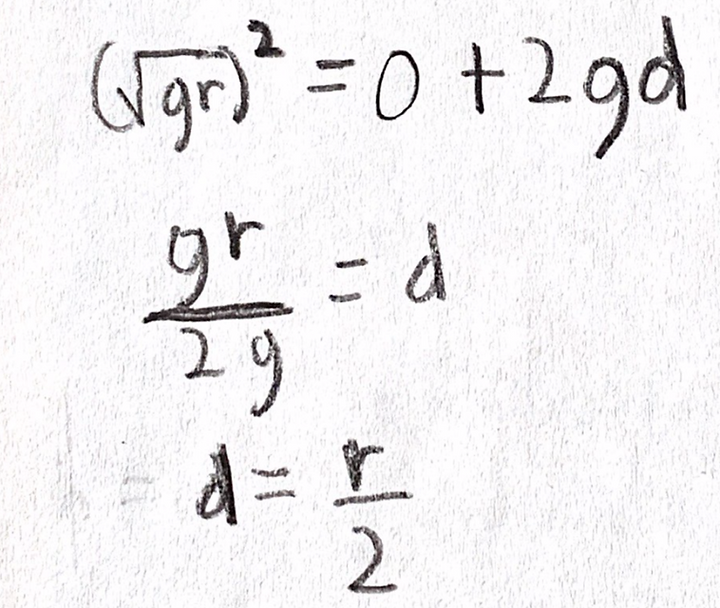 (√gr)² = 0 + 2gd
gr/2g = d
d = r/2